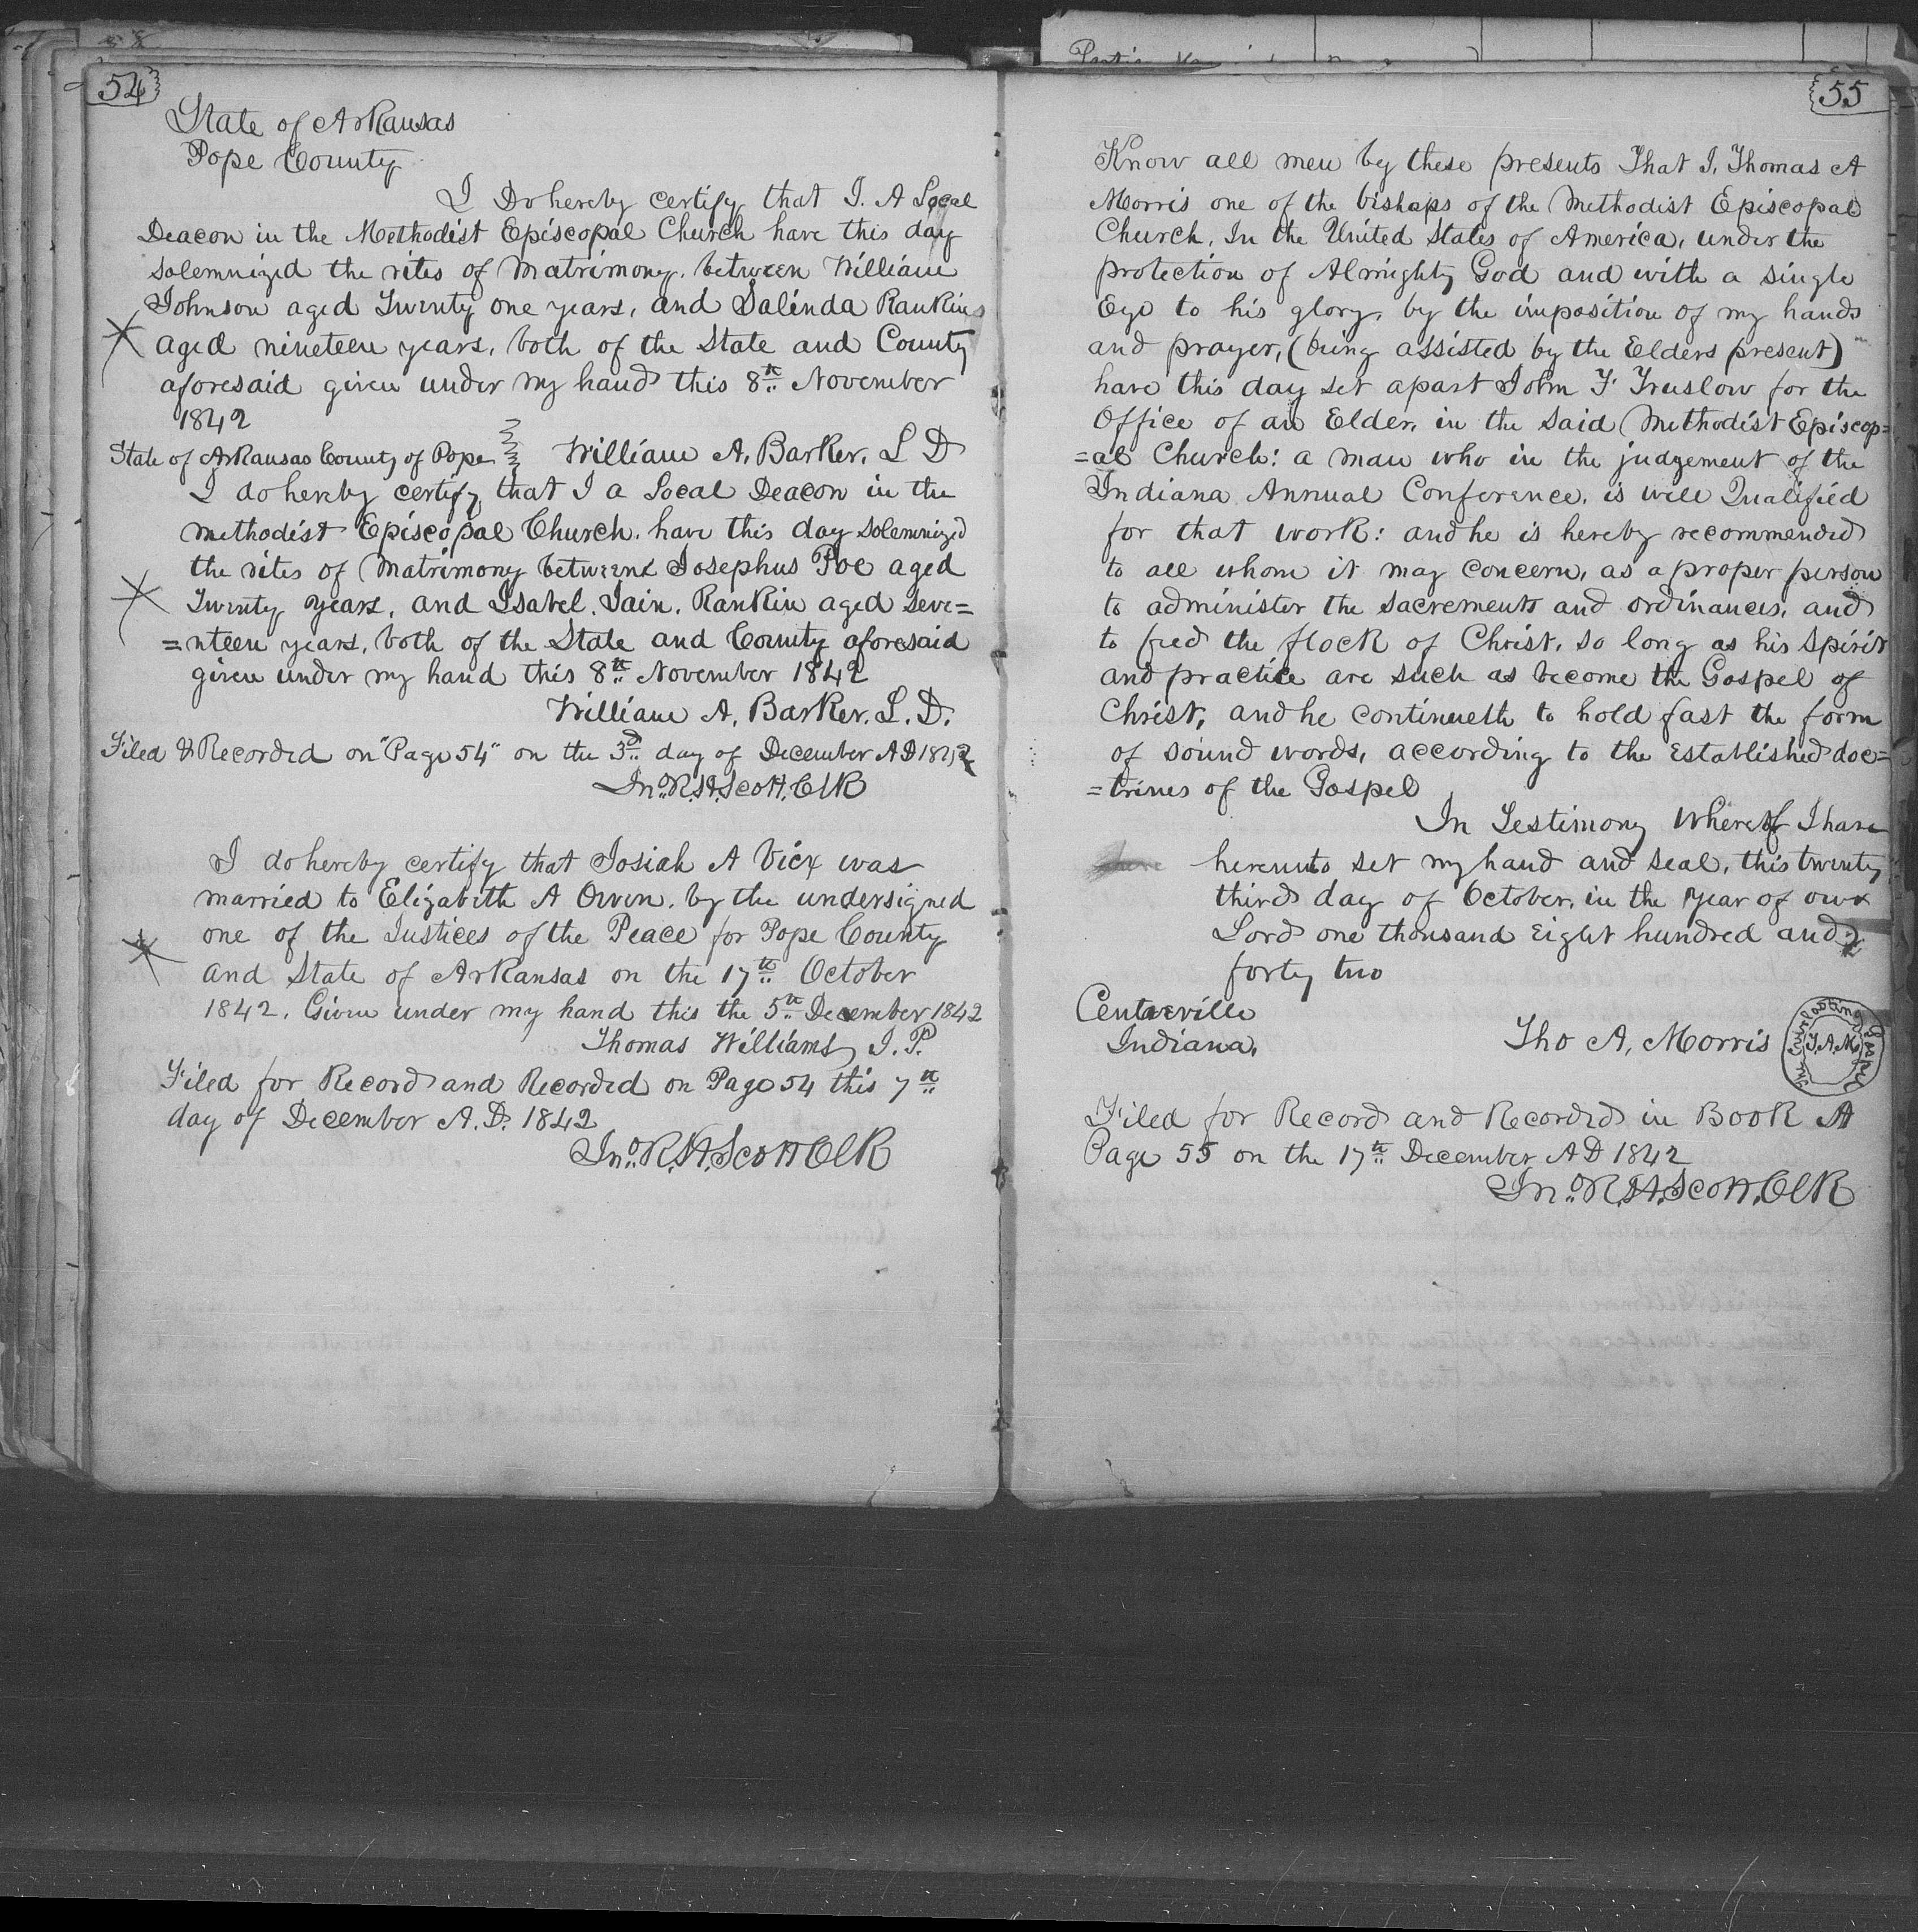 54
State of Arkansas
Pope County
I Do hereby certify that I. A Local
Deacon in the Methodist Episcopal Church have this day
solemnized the rites of Matrimony. between William
Johnson aged Twenty one years, and Salinda Rankins
aged nineteen years, both of the State and County
aforesaid given under my hand this 8th November
1842
State of Arkansas County of Pope William A. Barker. L D
I do hereby certify that I a Local Deacon in the
Methodist Episcopal Church. have this day solemnized
the rites of Matrimony between Josephus Poe aged
Twenty years, and Isabel. Jain. Rankin aged seve=
=nteen years, both of the State and County aforesaid
given under my hand this 8th November 1842
William A. Barker. L. D.
Filed & Recorded on "Page 54" on the 3d day of December AD 1842
Jno. R. H. Scott. Clk
I do hereby certify that Josiah A Vick was
married to Elizabeth A Owen. by the undersigned
one of the Justices of the Peace for Pope County
and State of Arkansas on the 17th October
1842. Given under my hand this the 5th December 1842
Thomas Williams J. P.
Filed for Record and Recorded on Page 54 this 7th
day of December A. D. 1842
Jno. R. H. Scott Clk
55
Know all men by these presents That I, Thomas A
Morris one of the bishops of the Methodist Episcopal
Church, In the United States of America, under the
protection of Almighty God and with a single
Eye to his glory, by the imposition of my hands
and prayer, (being assisted by the Elders present)
have this day set apart John F Truslow for the
Office of an Elder, in the said Methodist Episcop=
=al Church: a man who in the judgement of the
Indiana Annual Conference, is well Qualified
for that work: and he is hereby recommended
to all whom it may concern, as a proper person
to administer the sacrements and ordinances, and
to feed the flock of Christ, so long as his spirit
and practice are such as become the Gospel of
Christ, and he continueth to hold fast the form
of sound words, according to the established doc=
=trines of the Gospel
In Testimony Whereof I have
hereunto set my hand and seal, this twenty
third day of October, in the year of our
Lord one thousand Eight hundred and
forty two
Centreville
Indiana.
Tho A, Morris
The Everlasting Gospel
T. A. M.
Filed for Record and Recorded in Book A
Page 55 on the 17th December AD 1842
Jno. R. H. Scott. Clk